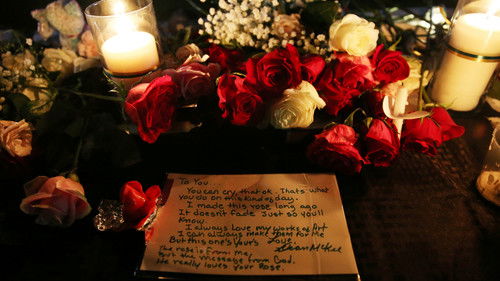 To You
You can cry, that ok. Thats what
you do on this kind of day.
I made this rose long ago
It doesn't fade Just so you'll
Know.
I always love my works of Art
I can always make them for Me
But this one's Yours Love,
The rose is From me, Sean McKee
But the message from God.
He really loves your Rose.